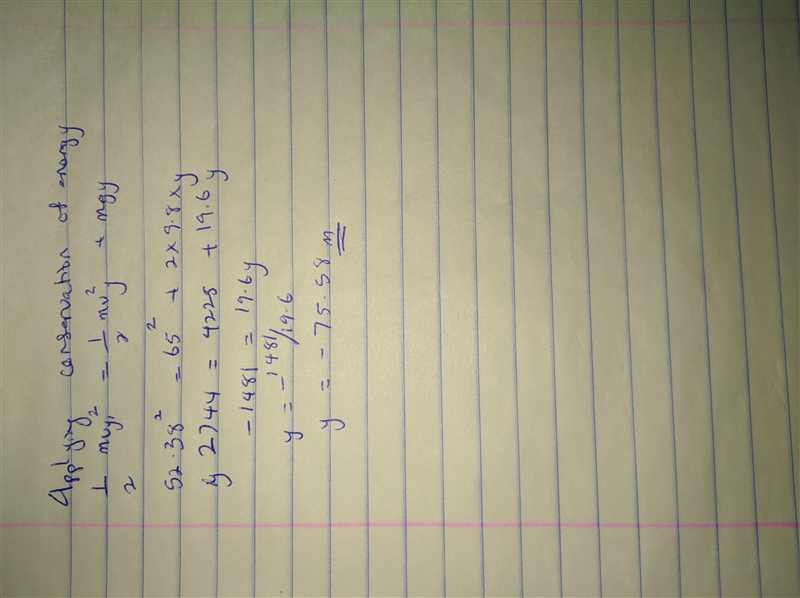 Applying conservation of energy
1/2 mvy₁² = 1/2 mvy² + mgy
52.38² = 65² + 2×9.8×y
2744 = 4225 + 19.6y
-1481 = 19.6y
y = -1481/19.6
y = -75.58m